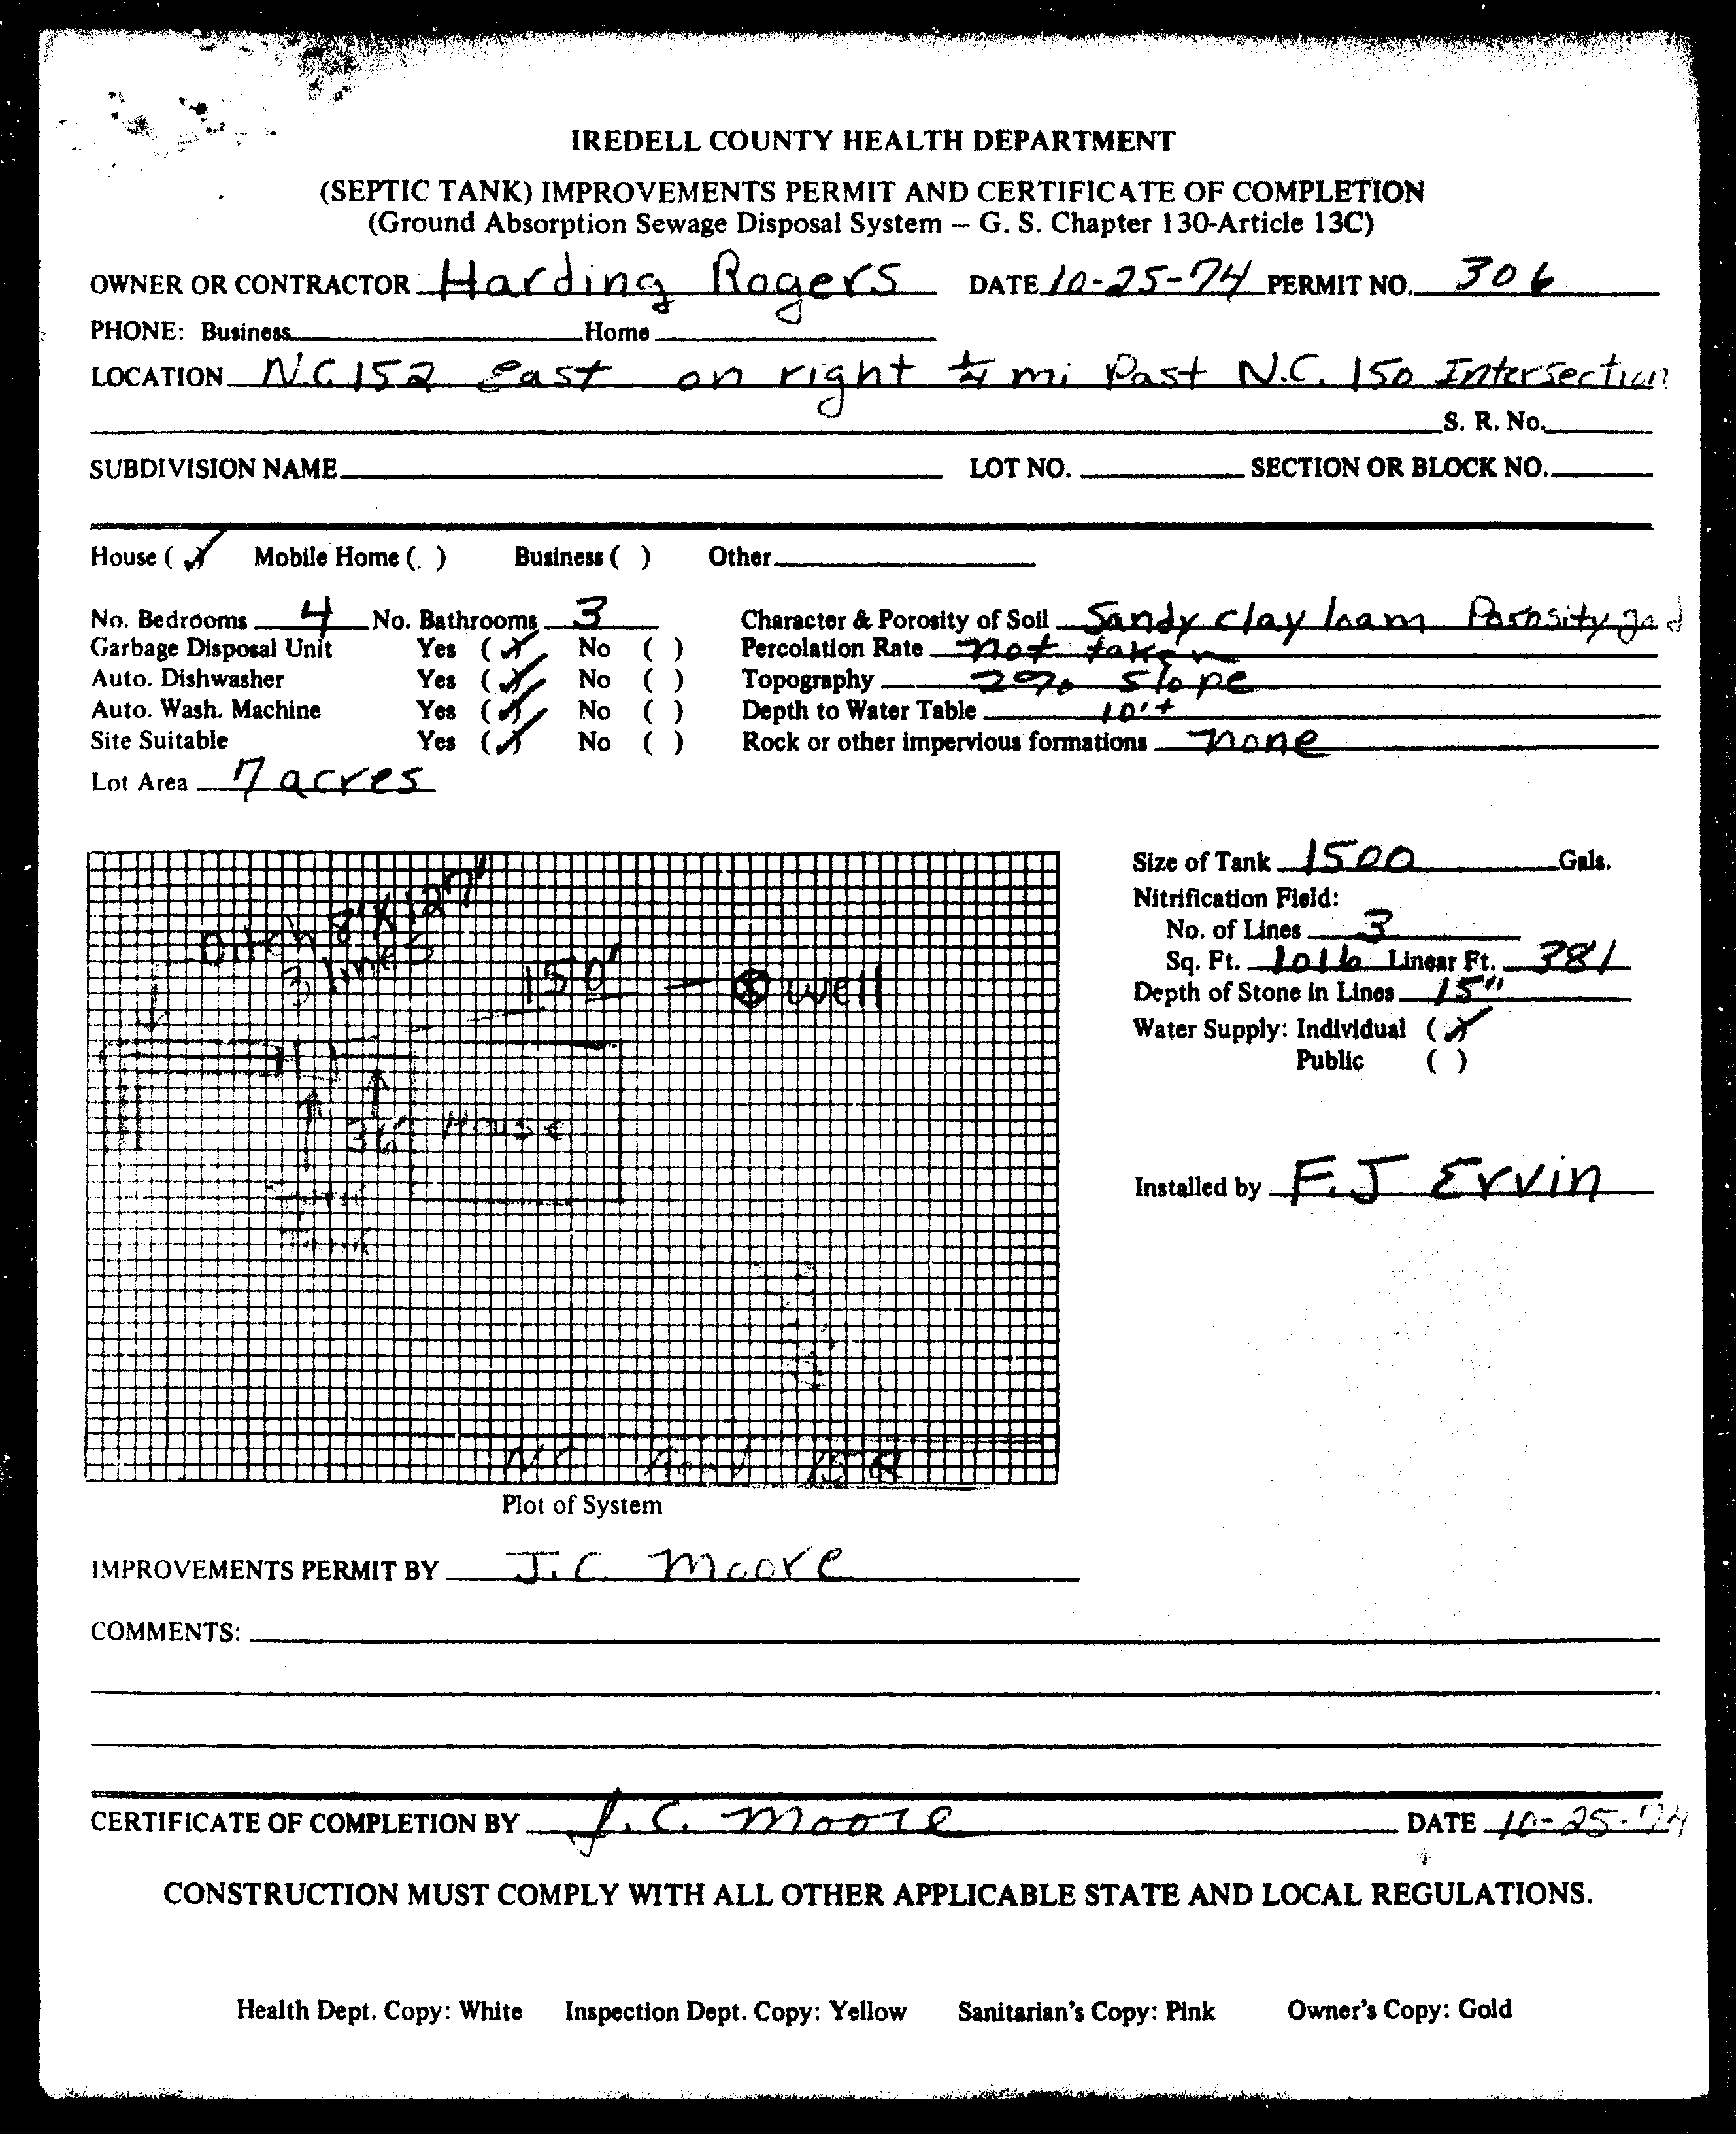 IREDELL COUNTY HEALTH DEPARTMENT
(SEPTIC TANK) IMPROVEMENTS PERMIT AND CERTIFICATE OF COMPLETION
(Ground Absorption Sewage Disposal System – G. S. Chapter 130-Article 13C)
OWNER OR CONTRACTOR Harding Rogers DATE 10-25-74 PERMIT NO. 306
PHONE: Business Home
LOCATION N.C. 152 East on right 1/4 mi Past N.C. 150 Intersection
S. R. No.
SUBDIVISION NAME LOT NO. SECTION OR BLOCK NO.
House (✓) Mobile Home ( ) Business ( ) Other
No. Bedrooms 4 No. Bathrooms 3 Character & Porosity of Soil Sandy clay loam Porosity good
Garbage Disposal Unit Yes (✓) No ( ) Percolation Rate not taken
Auto. Dishwasher Yes (✓) No ( ) Topography 2% slope
Auto. Wash. Machine Yes (✓) No ( ) Depth to Water Table 10'+
Site Suitable Yes (✓) No ( ) Rock or other impervious formations none
Lot Area 7 acres
Ditch 8' X 127'
3 lines
150' well
36' House
N.C. Road 152
Plot of System
Size of Tank 1500 Gals.
Nitrification Field:
No. of Lines 3
Sq. Ft. 1016 Linear Ft. 381
Depth of Stone in Lines 15"
Water Supply: Individual (✓)
Public ( )
Installed by F.J Ervin
IMPROVEMENTS PERMIT BY J.C. Moore
COMMENTS:
CERTIFICATE OF COMPLETION BY J. C. Moore DATE 10-25-74
CONSTRUCTION MUST COMPLY WITH ALL OTHER APPLICABLE STATE AND LOCAL REGULATIONS.
Health Dept. Copy: White Inspection Dept. Copy: Yellow Sanitarian's Copy: Pink Owner's Copy: Gold